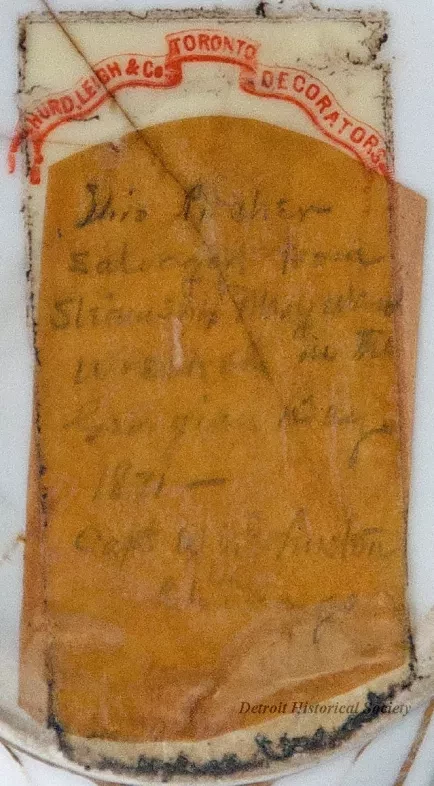 HURD, LEIGH & Co. TORONTO DECORATORS.
This Pitcher
salvaged from
Steamship
wrecked in the
Georgian Bay
1871 —
Capt
Detroit Historical Society